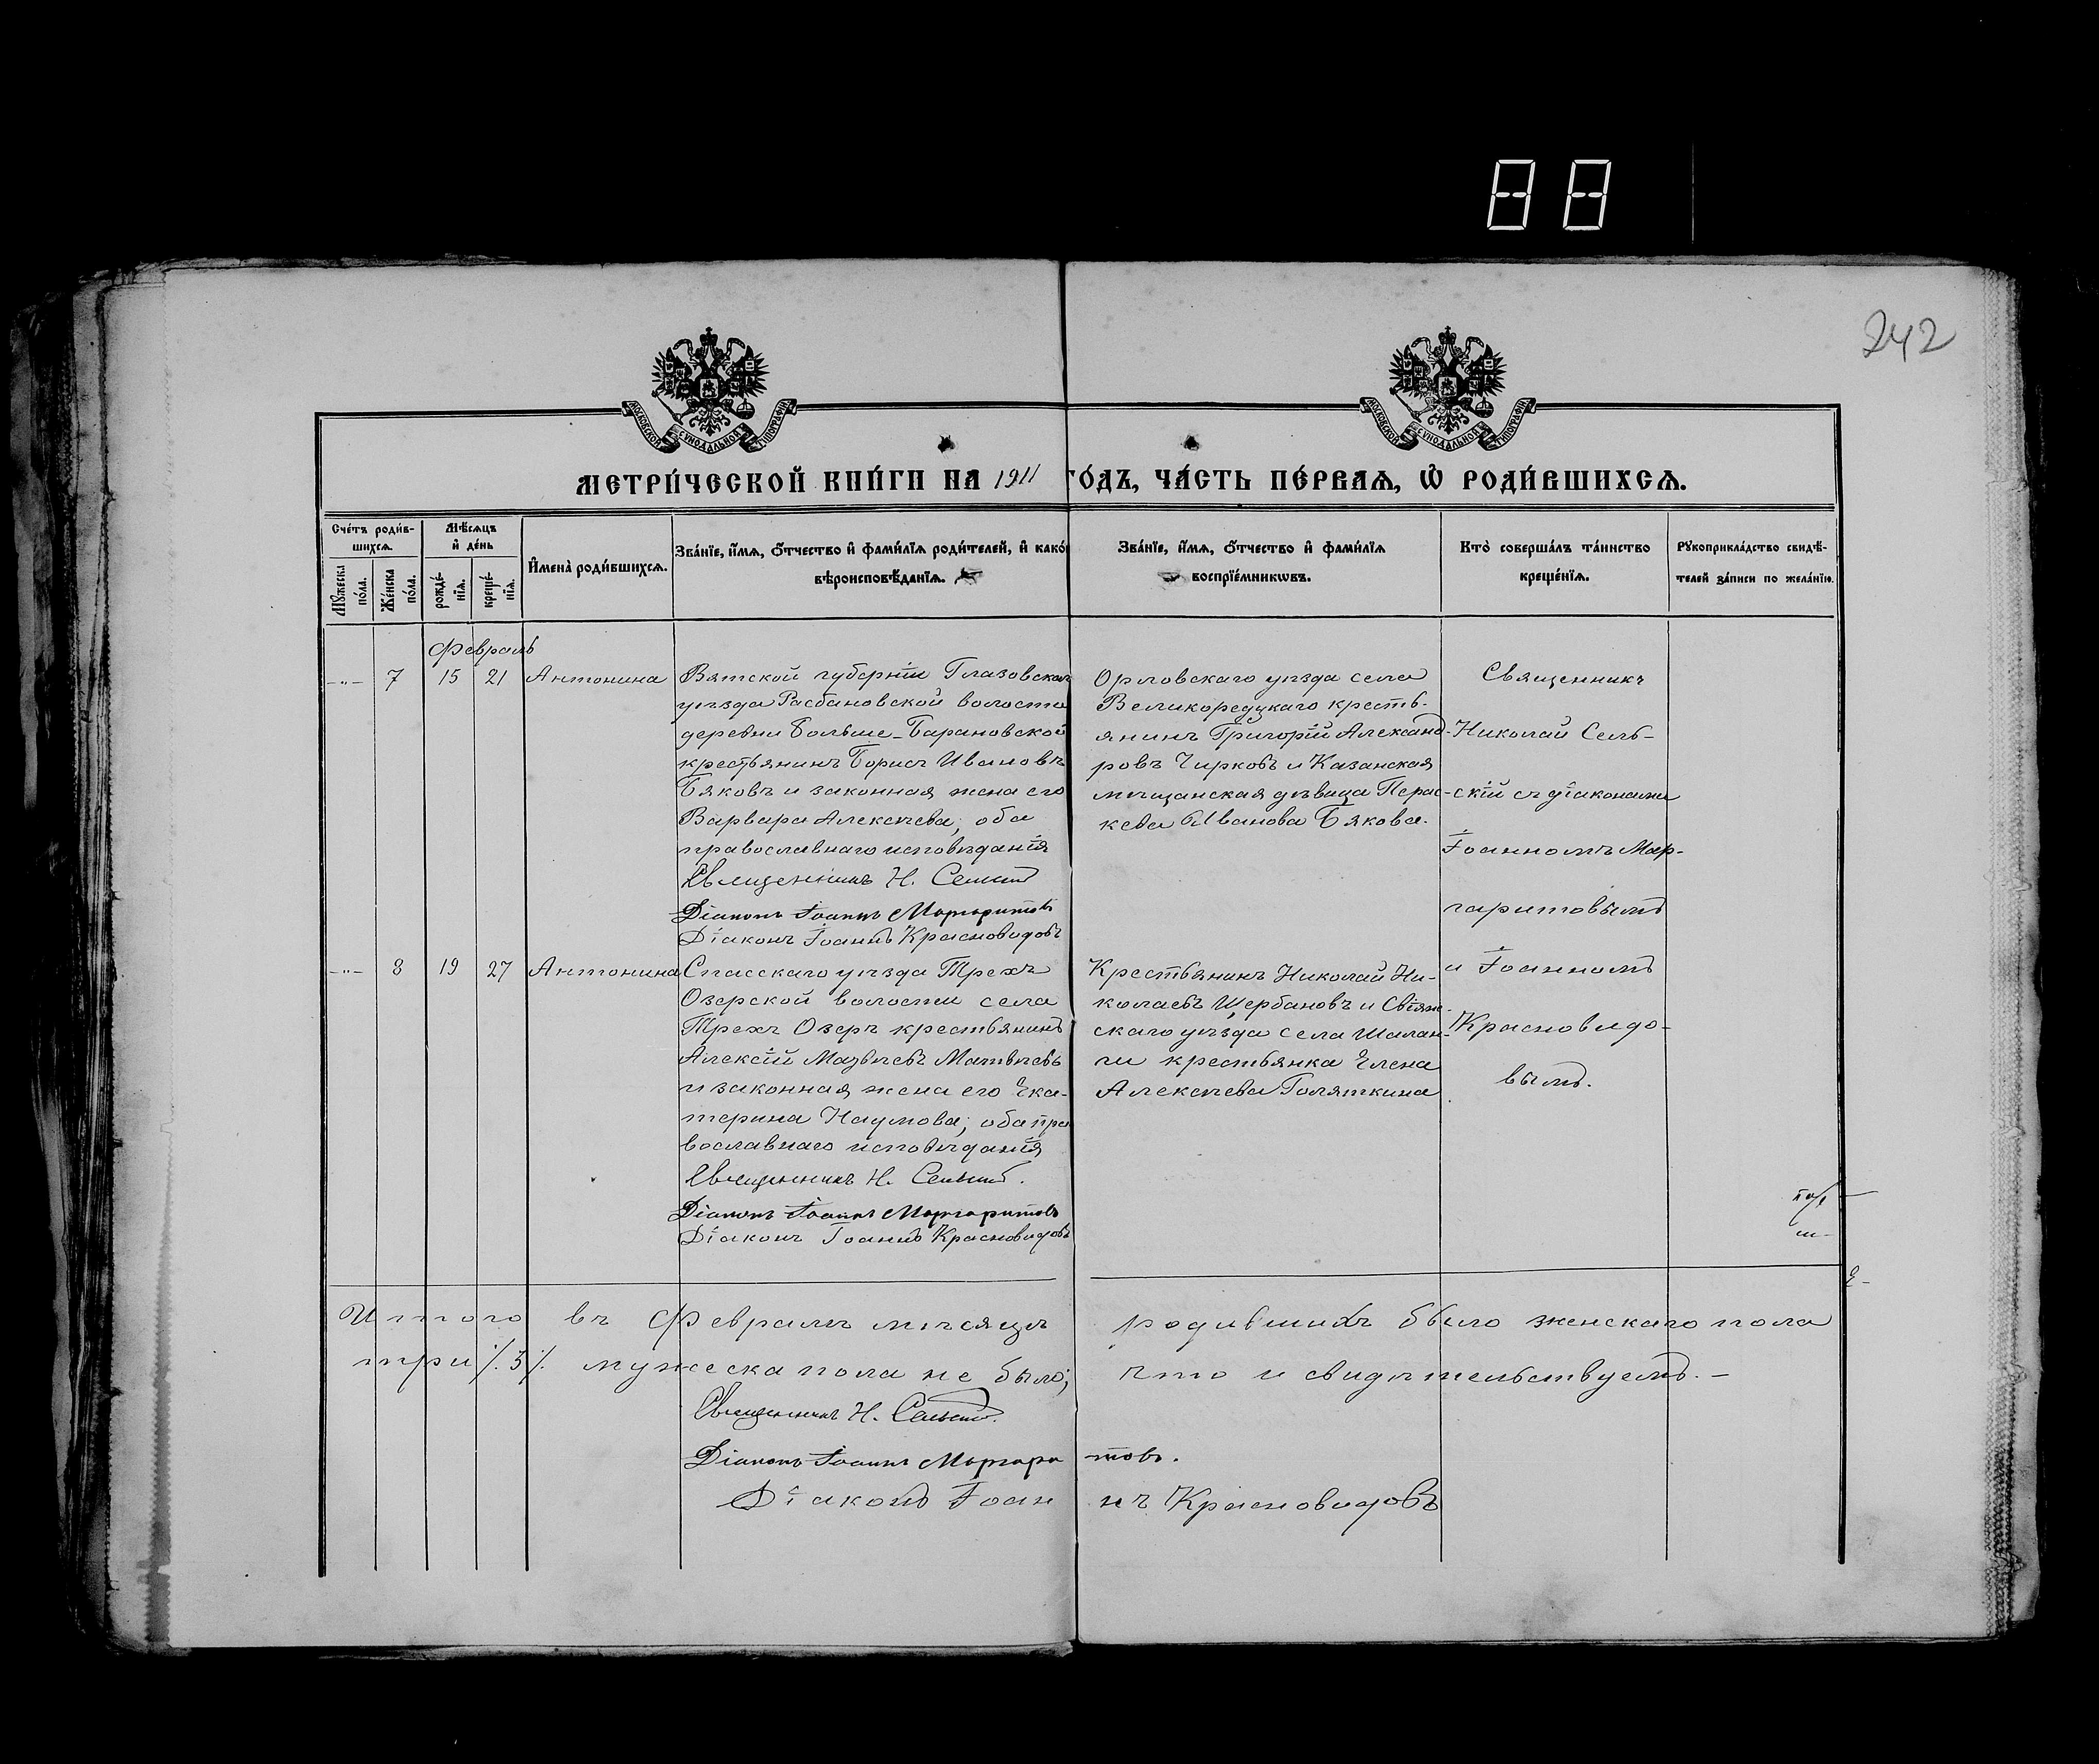 88
242
МОСКОВСКОЙ СѴНОДАЛЬНОЙ ТИПОГРАФІИ
МОСКОВСКОЙ СѴНОДАЛЬНОЙ ТИПОГРАФІИ
МЕТРИ́ЧЕСКОЙ КНИ́ГИ НА 1911 ГО́ДЪ, ЧА́СТЬ ПЕ́РВАѦ, Ѡ҆ РОДИ́ВШИХСѦ.
Сче́тъ роди́в-
шихсѧ.
Мꙋ́жеска по́ла.
Же́нска по́ла.
Мѣ́сѧцъ
и҆ де́нь
рожде́-нїѧ.
креще́-нїѧ.
И҆мена̀ роди́вшихсѧ.
Зва́нїе, и҆́мѧ, ѻ҆́тчество и҆ фами́лїѧ роди́телей, и҆ како́
вѣроисповѣ́данїѧ.
Зва́нїе, и҆́мѧ, ѻ҆́тчество и҆ фами́лїѧ
воспрїе́мникѡвъ.
Кто̀ соверша́лъ та́инство
креще́нїѧ.
Рꙋкоприкла́дство свидѣ́-
телей за́писи по жела́нїю.
Февраль
-„- 7 15 21 Антонина
Вятской губерніи Глазовскаг
уѣзда Расбановской волости
деревни Больше-Барановской
крестьянинъ Борисъ Ивановъ
Бяковъ и законная жена его
Варвара Алексѣева, оба
православнаго исповѣданія
Священникъ Н. Сельскій
Діаконъ Іоаннъ Маргаритовъ
Діаконъ Іоаннъ Красновидовъ
Орловскаго уѣзда села
Великорецкаго кресть-
янинъ Григорій Александ-
ровъ Чирковъ и Казанская
мѣщанская дѣвица Парас-
кева Иванова Бякова.
Священникъ
Николай Сель-
скій съ діаконами
Іоанномъ Мар-
гаритовымъ
и Іоанномъ
Красновидо-
вымъ.
-„- 8 19 27 Антонина
Спасскаго уѣзда Трехъ
Озерской волости села
Трехъ Озеръ крестьянинъ
Алексій Матвѣевъ
и законная жена его Ека-
терина Наумова; оба пра
вославнаго исповѣданія
Священникъ Н. Сельскій.
Діаконъ Іоаннъ Маргаритовъ
Діаконъ Іоаннъ Красновидовъ
Крестьянинъ Николай Ни-
колаевъ Щербаковъ и Свіяж-
скаго уѣзда села Шалан-
ги крестьянка Елена
Алексѣева Голяткина
Итого въ Февралѣ мѣсяцѣ родившихъ было женскаго пола
три /.3/. мужеска пола не было; что и свидѣтельствуемъ.-
Священникъ Н. Сельскій.
Діаконъ Іоаннъ Маргари товъ.
Діаконъ Іоан нъ Красновидовъ